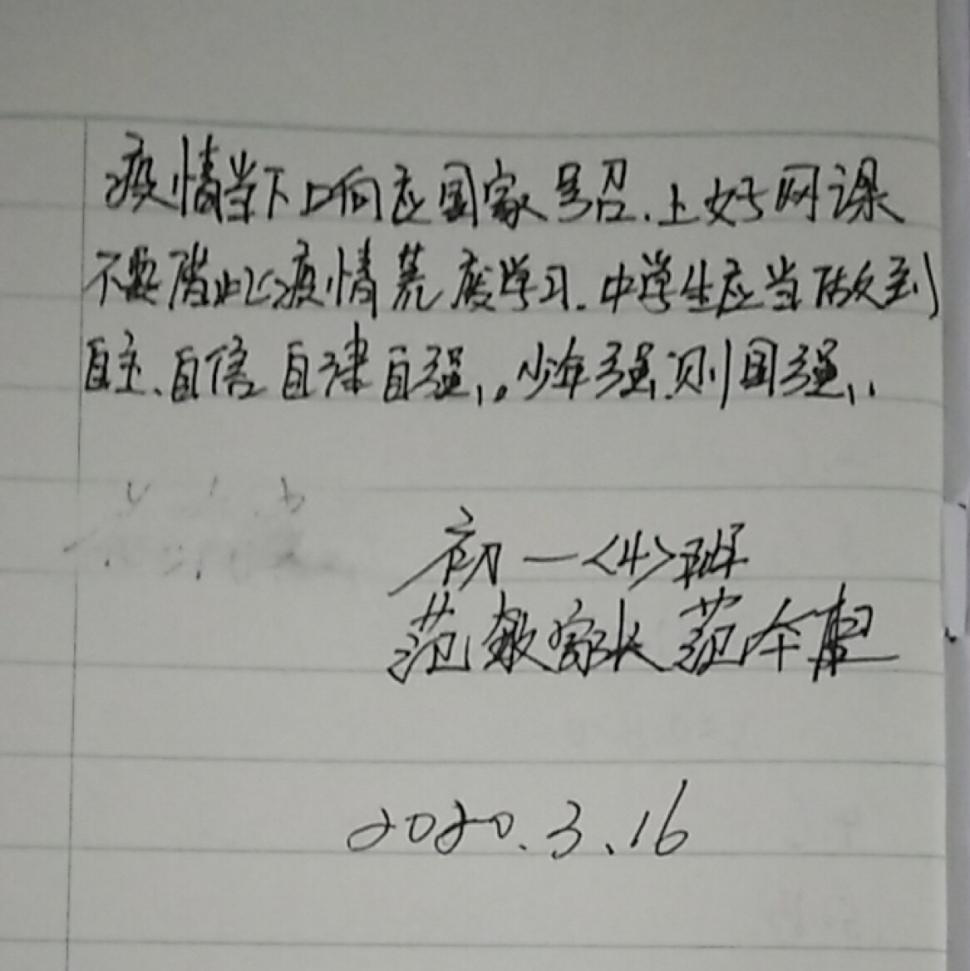 疫情当下响应国家号召.上好网课
不要借此疫情荒废学习.中学生应当做到
自主、自信自律自强,。少年强,则国强,.
初一<4>班
范毅家长范全
2020.3.16